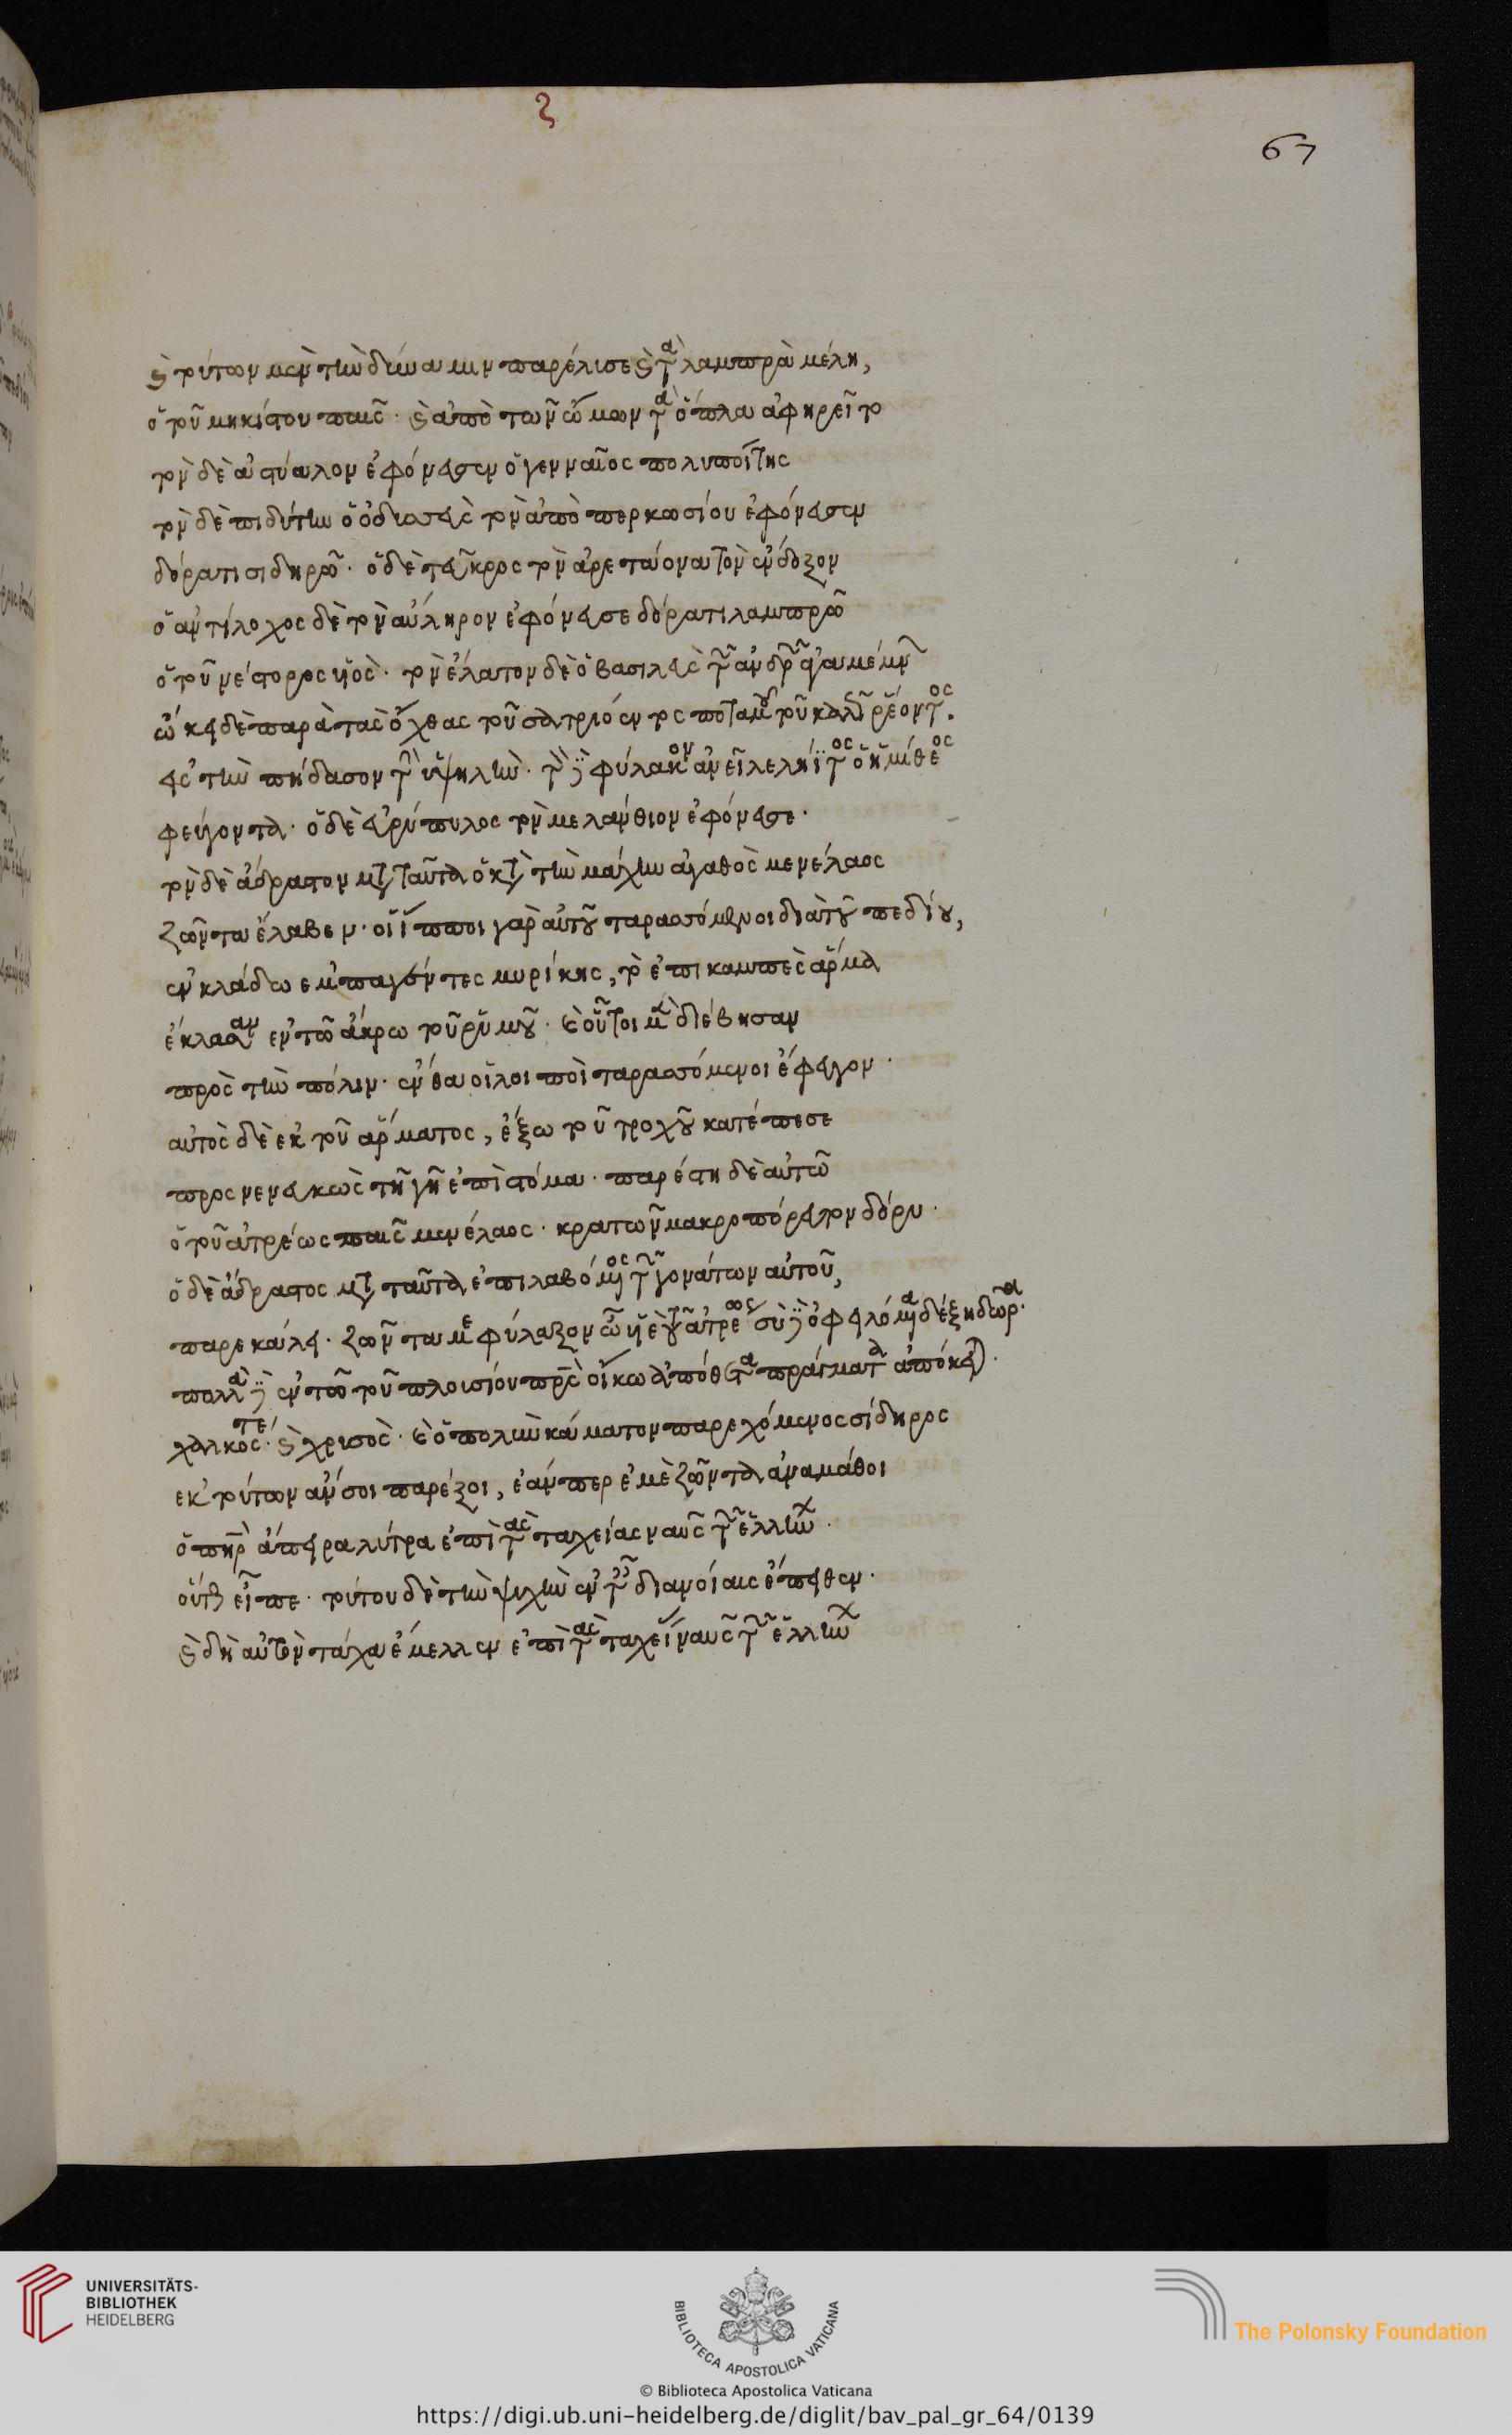 καὶ τούτων μὲν τὴν δύναμιν παρέλισε καὶ τὰ λαμπρὰ μέλη,
ὁ τοῦ μηκίστου παῖς· καὶ ἀπὸ τῶν ὤμων τὰ ὅπλα ἀφηρεῖτο
τὸν δὲ ἀστύαλον ἐφόνευσεν ὁ γενναῖος πολυποίτης
τὸν δὲ πιδύτην ὁ ὀδυσσεὺς τὸν ἀπὸ περκωσίου ἐφόνευσεν
δόρατι σιδηρῶ· ὁ δὲ τεῦκρος τὸν ἀρετάονα τὸν ἔνδοξον
ὁ ἀντίλοχος δὲ τὸν αὔληρον ἐφόνευσε δόρατι λαμπρῶ
ὁ τοῦ νέστορος υἱὸς· τὸν ἔλατον δὲ ὁ βασιλεὺς τῶν ἀνδρῶν ἀγαμέμνων
ὤκει δὲ παρὰ τὰς ὄχθας τοῦ σατριόεντος ποταμοῦ τοῦ καλῶς ῥέοντος.
εἰς τὴν πήδασον τὴν ὑψηλὴν· τὸν δὲ φύλακον ἀνεῖλε λήϊτος ὁ ἡμίθεος
φεύγοντα· ὁ δὲ εὐρύπυλος τὸν μελάνθιον ἐφόνευσε·
τὸν δὲ ἄδραστον μετὰ ταῦτα ὁ κατὰ τὴν μάχην ἀγαθὸς μενέλαος
ζῶντα ἔλαβεν· οἱ ἵπποι γὰρ αὐτοῦ ταρασσόμενοι διὰ τοῦ πεδίου,
ἐν κλάδω ἐμπαγέντες μυρίκης, τὸ ἐπικαμπὲς ἅρμα
ἔκλασαν ἐν τῶ ἄκρω τοῦ ῥυμοῦ· καὶ οὗτοι μὲν διέβησαν
πρὸς τὴν πόλιν· ἔνθα οἱ λοιποὶ ταρασσόμενοι ἔφευγον·
αὐτὸς δὲ ἐκ τοῦ ἅρματος, ἔξω τοῦ τροχοῦ κατέπεσε
προσνενευκὼς τῆ γῆ ἐπὶ στόμα· παρέστη δὲ αὐτῶ
ὁ τοῦ ἀτρέως παῖς μενέλαος· κρατῶν μακροπόρευτον δόρυ·
ὁ δὲ ἄδραστος μετὰ ταῦτα ἐπιλαβόμενος τῶν γονάτων αὐτοῦ,
παρεκάλει· ζῶντα με φύλαξον ὦ υἱὲ τοῦ ἀτρέως σὺ δὲ ὀφειλόμενα δέξη δῶρα·
πολλὰ δὲ ἐν τῶ τοῦ πλουσίου πατρὸς οἴκω ἀπόθετα πράγματα ἀπόκειται·
χαλκὸς τὲ· καὶ χρυσὸς· καὶ ὁ πολὺν κάματον παρεχόμενος σίδηρος
ἐκ τούτων ἄν σοι παρέξοι, ἐάνπερ ἐμὲ ζῶντα ἀναμάθοι
ὁ πατὴρ ἄπειρα λύτρα ἐπὶ τὰς ταχείας ναῦς τῶν ἑλλήνων·
οὕτως εἶπε· τούτου δὲ τὴν ψυχὴν ἐν ταῖς διανοίαις ἔπειθεν·
καὶ δὴ αὐτὸν τάχα ἔμελλεν ἐπὶ τὰς ταχείας ναῦς τῶν ἑλλήνων
67
UNIVERSITÄTS-
BIBLIOTHEK
HEIDELBERG
BIBLIOTECA APOSTOLICA VATICANA
The Polonsky Foundation
© Biblioteca Apostolica Vaticana
https://digi.ub.uni-heidelberg.de/diglit/bav_pal_gr_64/0139